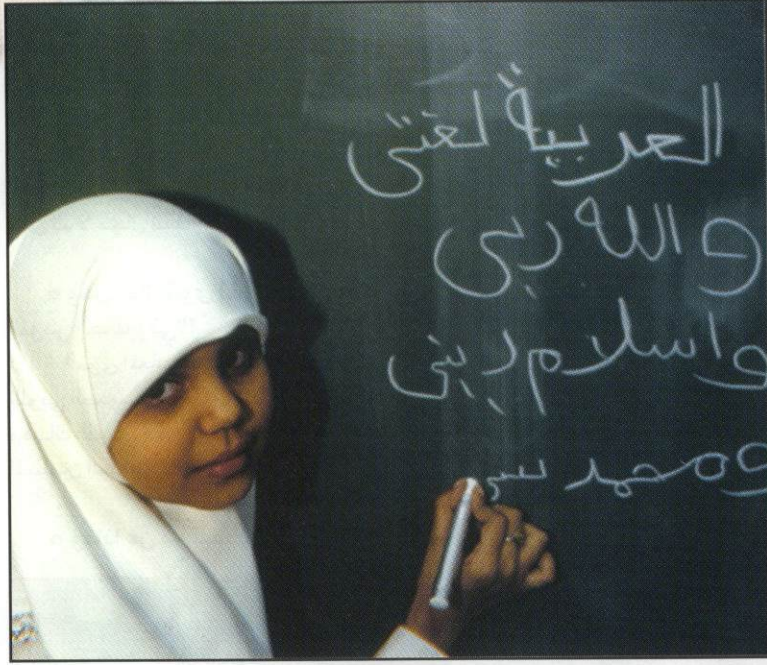 العربية لغتى
والله ربى
واسلام دينى
ومحمد